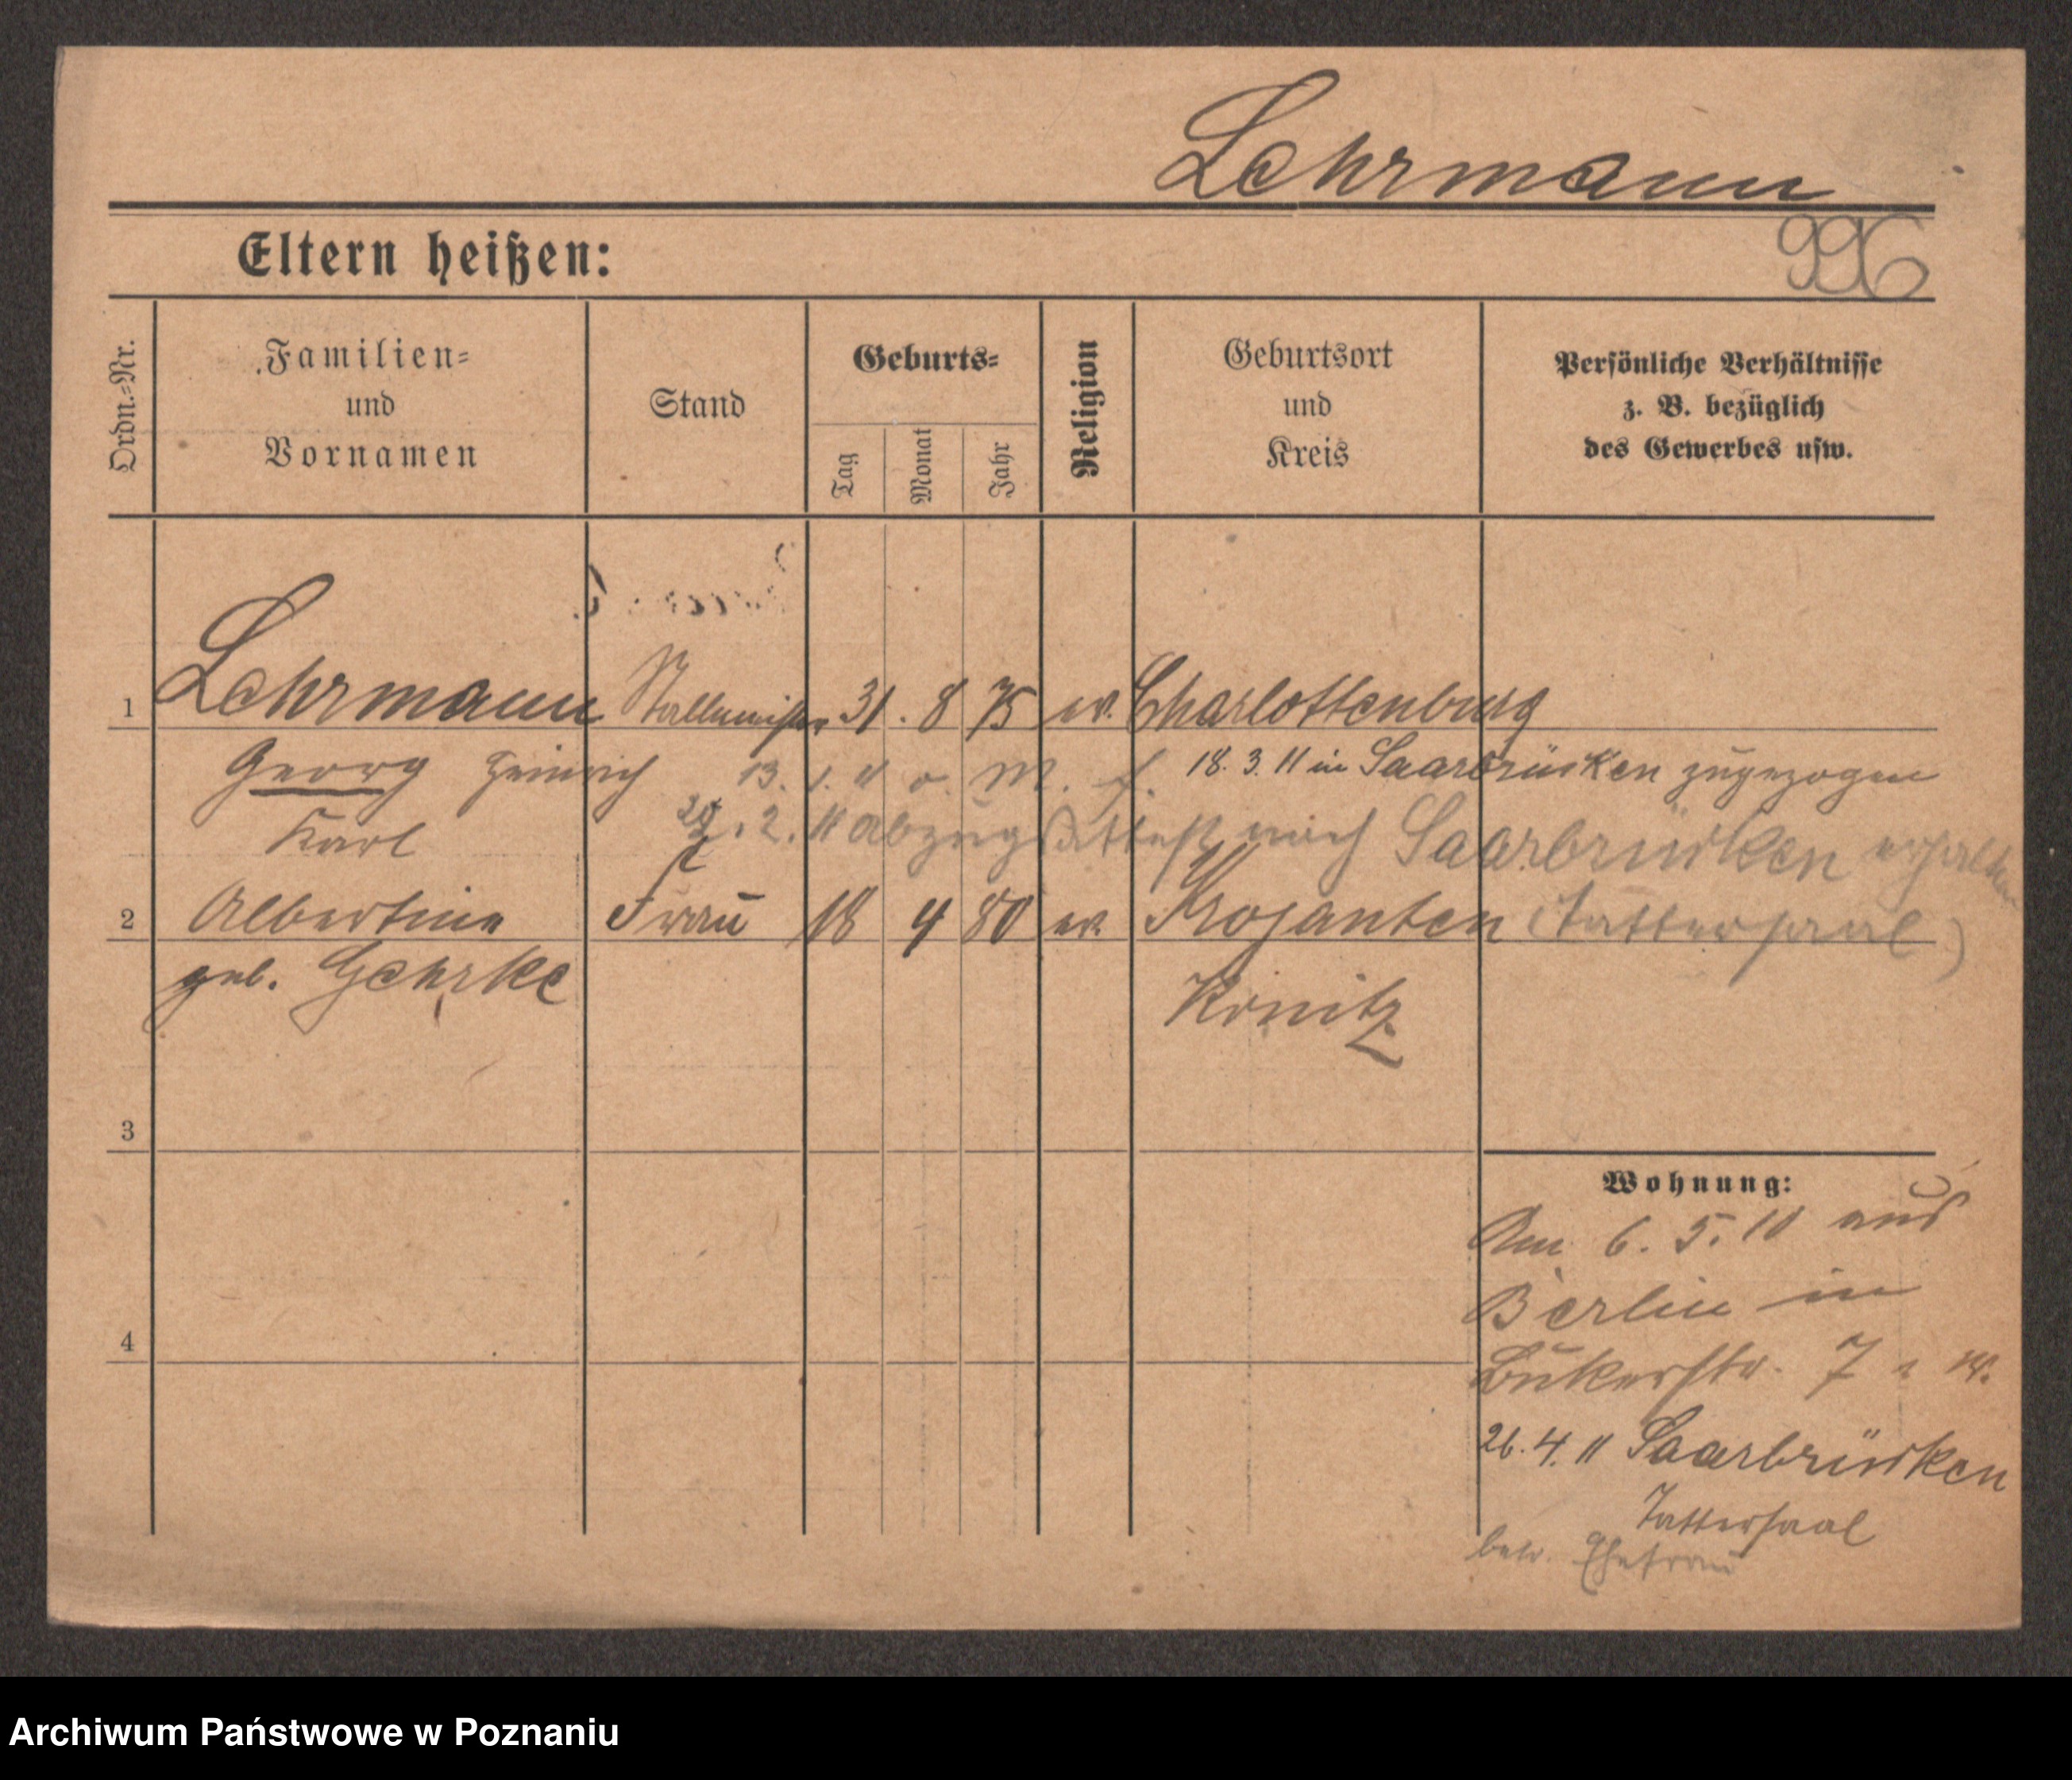 Lehrmann
996
Eltern heißen:
Ordn.=Nr.
Familien=
und
Vornamen
Stand
Geburts=
Tag
Monat
Jahr
Religion
Geburtsort
und
Kreis
Persönliche Verhältnisse
z. B. bezüglich
des Gewerbes usw.
1 Lehrmann Stallmeister 31. 8 75 ev. Charlottenburg
Georg Heinrich 13. 1. 11 o. M. f. 18. 3. 11 in Saarbrücken zugezogen
Karl 2. 11 Abzugsattest nach Saarbrücken erhalten
2 Albertine Frau 18 4 80 ev. Krojanten (Tattersaal)
geb. Gehrke Konitz
3
4
Wohnung:
Am 6. 5. 10 aus
Berlin in
Bukerstr. 7
26. 4. 11 Saarbrücken
Tattersaal
betr. Ehefrau
Archiwum Państwowe w Poznaniu